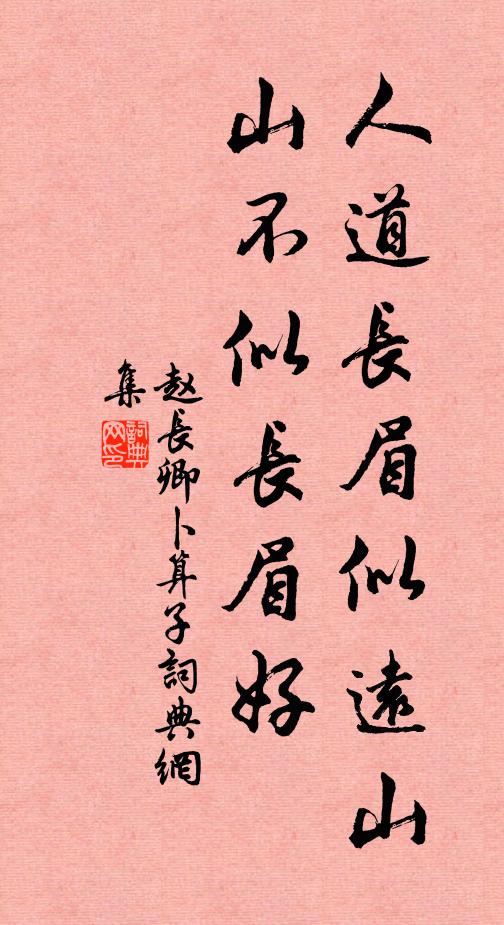 人道長眉似遠山
山不似長眉好
赵長卿卜算子詞典網
集
詞典
网印